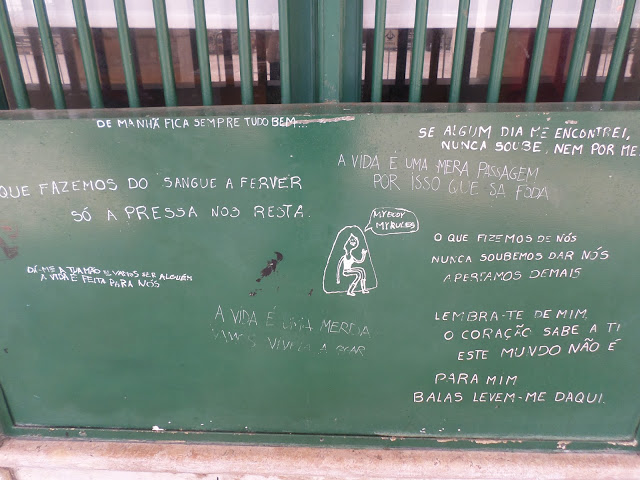 DE MANHÃ FICA SEMPRE TUDO BEM...
SE ALGUM DIA ME ENCONTREI,
NUNCA SOUBE, NEM POR ME
A VIDA É UMA MERA PASSAGEM
POR ISSO QUE SA FODA
QUE FAZEMOS DO SANGUE A FERVER
SÓ A PRESSA NOS RESTA.
MY BODY
MY RULES
O QUE FIZEMOS DE NÓS
NUNCA SOUBEMOS DAR NÓS
APERTAMOS DEMAIS
DÁ-ME A TUA MÃO E VAMOS SER ALGUÉM
A VIDA É FEITA PARA NÓS
A VIDA É UMA MERDA
VIVER A
LEMBRA-TE DE MIM.
O CORAÇÃO SABE A TI
ESTE MUNDO NÃO É
PARA MIM
BALAS LEVEM-ME DAQUI.